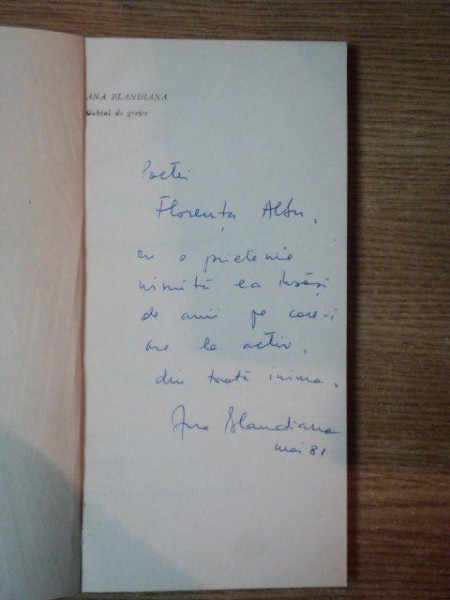 ANA BLANDIANA
Ochiul de greier
Poetei
Florența Albu,
cu o prietenie
uimită ea însăși
de anii pe care-i
are la activ,
din toată inima,
Ana Blandiana
mai 81